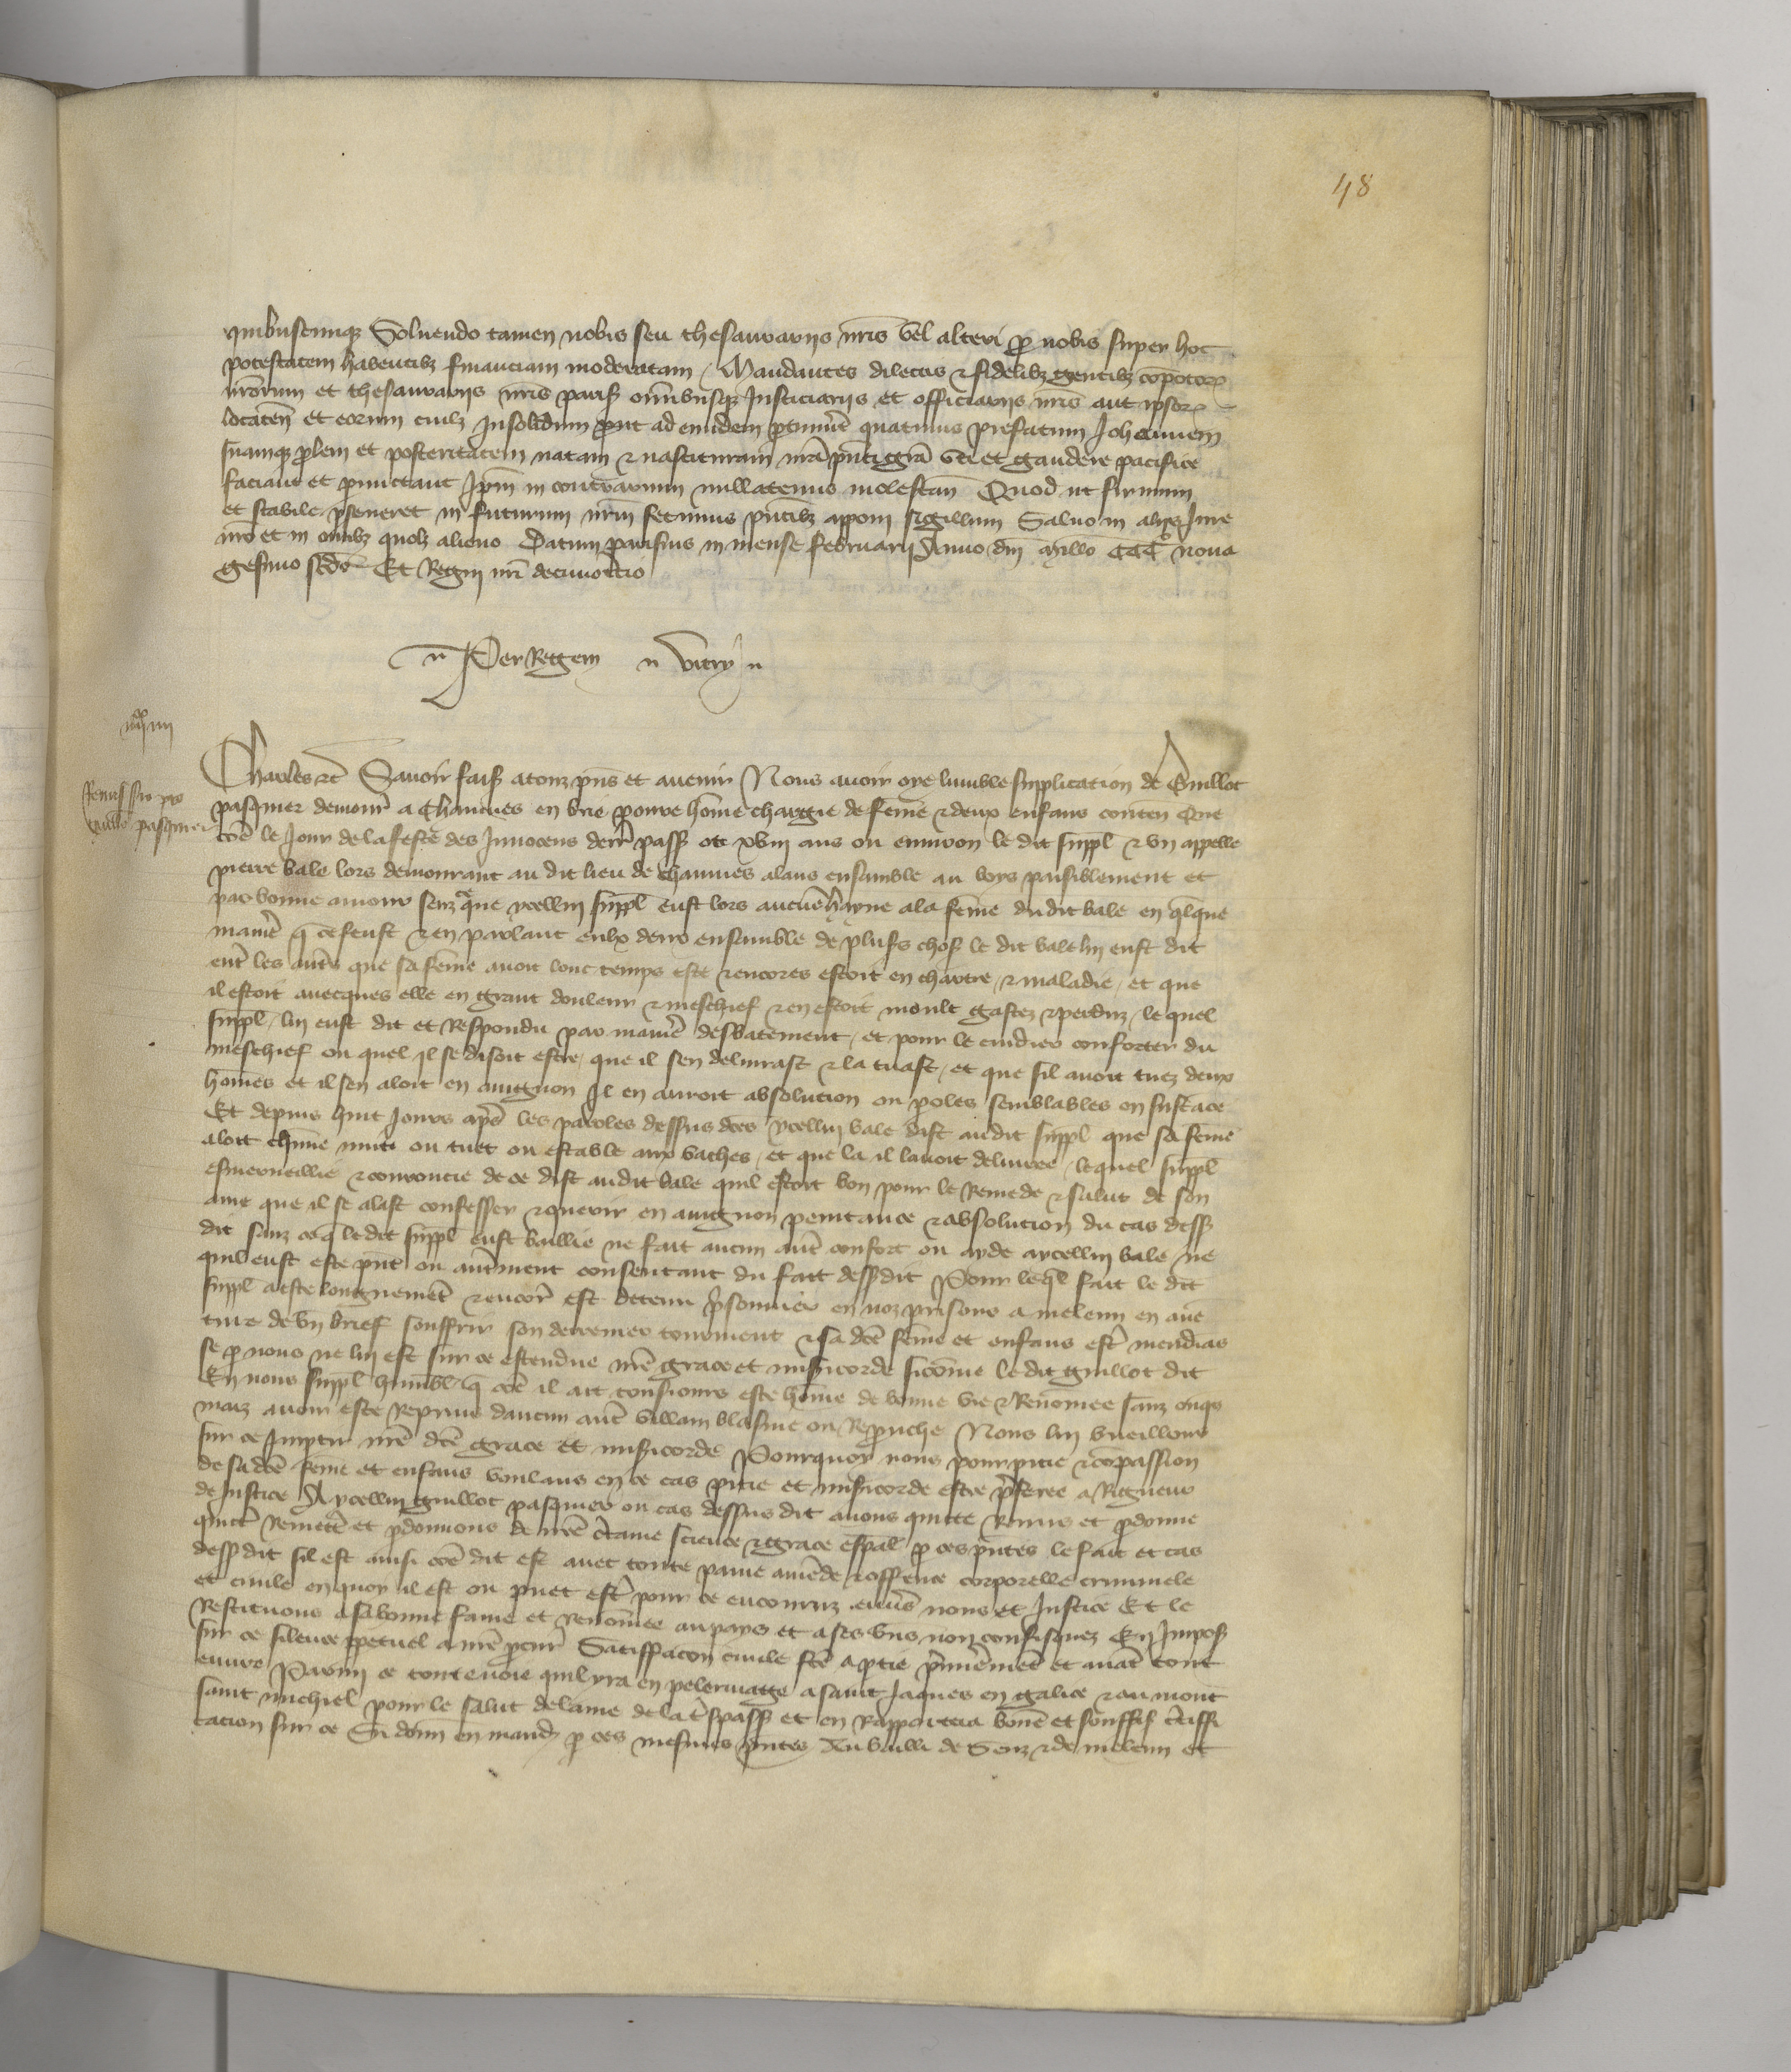 48
quibuscunque Solvendo tamen nobis seu thesaurariis nris vel alteri pro nobis super hoc
potestatem habentibz financiam moderatam / Mandantes dilectis & fidelibz gentibz compotorum
nrorum et thesaurariis nris paris omnibusque Justiciariis et officiariis nris aut ipsorum
locaten et eorum cuilz Insolidum prout ad eundem ptinuit quatinus prefatum Johannem
suamque prolem et posteritatem natam & nascituram nra pnti gra uti et gaudere pacifice
faciant et pmittant Ipm in contrarium nullatenus molestan Quod ut firmum
et stabile pseveret in futurum nrm fecimus pntibz apponi sigillum Salvo in aliis Jure
nro et in omnibz quolz alieno Datum parisius in mense februarii Anno dni millo CCC nona
gesimo scdo Et Regni nri decimotcio
Per Regem Vitry
iiij
Charles etc Savoir faiss atouz pns et avenir Nous avoir oye lumble supplication de Guillot
Remissio pro
Guillo pasquier
pasquier demour a Chauves en brie povre homme chargie de femme & deux enfans conten Que
comme le Jour de la feste des Innocens derr pass ot xviii ans ou environ le dit suppl & un appelle
pierre bale lors demourant au dit lieu de chauves alans ensamble au boys paisiblement et
par bonne amour senz que ycellui suppl eust lors aucune hayne ala femme dudit bale en quelque
maniere que ce feust & en parlant eulx deux ensamble de plus choses le dit bale lui eust dit
entre les autres que sa femme avoit lonc temps este & encores estoit en chartre & maladie / et que
il estoit avecques elle en grant douleur & meschief & en estoit moult gastez & perduz / le quel
suppl / lui eust dit et Respondu par maniere desbatement / et pour le cuidier conforter du
meschief ou quel il se disoit estre / que il sen delivrast & la tuast / et que sil avoit tuez deux
hommes et il sen aloit en avignon Il en auroit absolution ou paroles semblables en sustance
Et depuis huit Jours apres les paroles dessus dites ycellui bale dist audit suppl que sa femme
aloit chune nuit ou tuet ou estable aux vaches / et que la il lavoit delivree / lequel suppl
esmerveillie & courroucie de ce dist audit bale quil estoit bon pour le Remede & salut de son
ame que il se alast confesser & querir en avignon penitance & absolution du cas dess
dit sanz ce que ledit suppl eust baillie ne fait aucun autre confort ou ayde aycellui bale ne
quil eust este pnt ou autrement consentant du fait dessdit Pour lequel fait le dit
suppl a este longuement & encor est detenu prisonnier en noz prisons a meleun en aven
ture de un brief souffrir son derrenier tourment & sa dite femme et enfans estre mendias
se p nous ne lui est sur ce estendue nre grace et misericorde sicomme le dit guillot dit
En nous suppl humblement que comme il ait tousjours este homme de bonne vie & Renommee sanz onques
maiz avoir este Reprins daucun autre villain blasme ou Reprouche Nous lui vueillons
sur ce Impartir nre dite grace et misericorde Pourquoy nous pour pitie & compassion
de sa dite femme et enfans voulans en ce cas pitie et misericorde estre preferee a Rigueur
de Justice A ycellui guillot pasquier ou cas dessus dit avons quitte Remis et pdonne
quictons Remetons et pdonnons de nre certaine science & grace espal p ces pntes le fait et cas
dessdit sil est ainsi comme dit est avec toute paine amende & offense corporelle criminele
et civile en quoy il est ou puet estre pour ce encouruz envers nous et Justice Et le
Restituons a sa bonne fame et Renommee au pays et a ses biens non confisquez En Impos
sur ce silence ppetuel a nre pcur Satisffacon civile fte a ptie premierement et avant tout
euvre Parmi ce toutevoie quil yra en pelerinage a saint Jaques en galice & au mont
saint michiel pour le salut de lame de la trespass et en Rapportera bonne et souffis certiffi
cacion sur ce Si donn en mand p ces mesmes pntes Au bailli de Senz & de meleun et